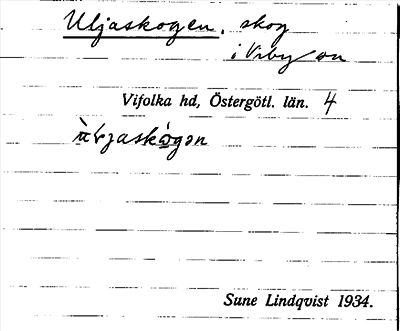 Uljaskogen, skog
i Viby sn
Vifolka hd, Östergötl. län. 4
Sune Lindqvist 1934.